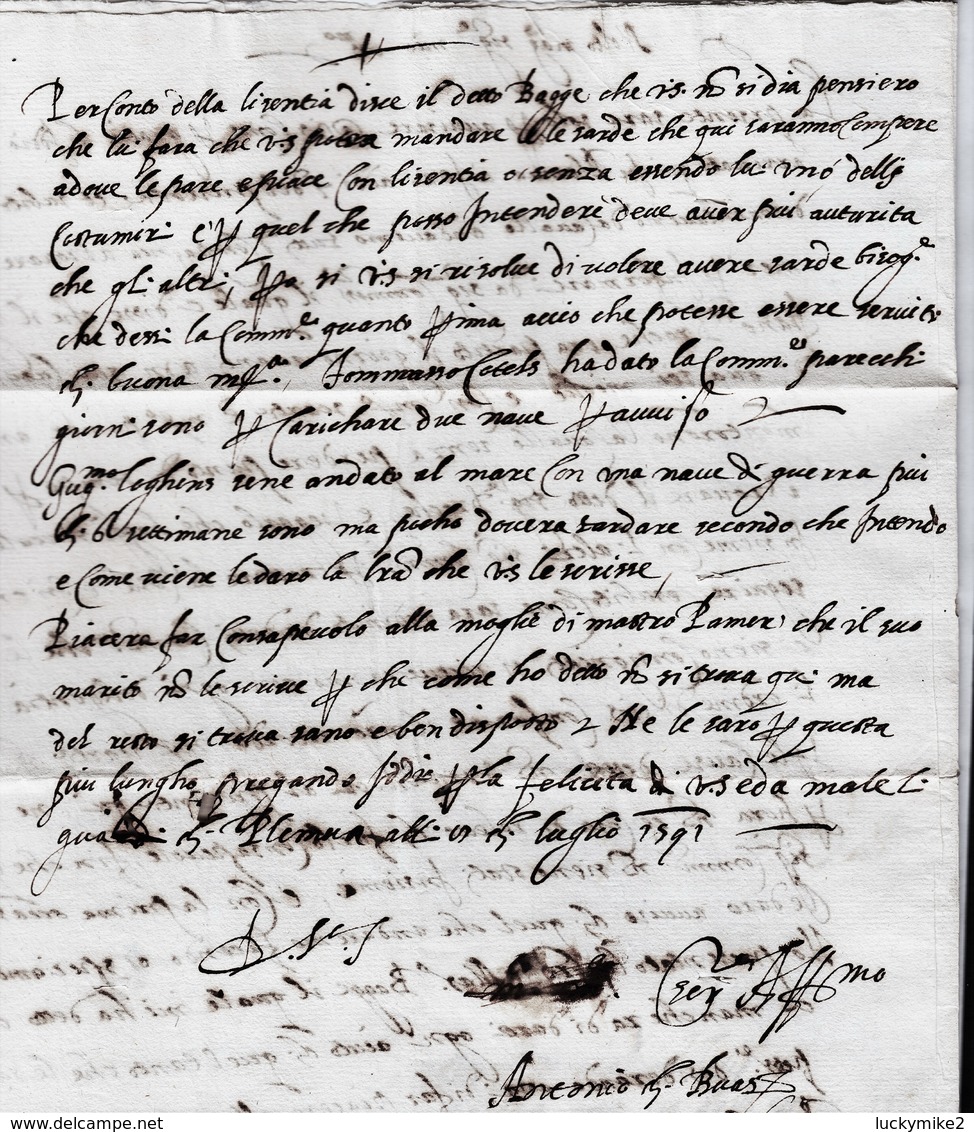 Per Conto della lisentia disce il detto Bagge che v.s. nō si dia pensiero
che lui fara che v.s. potra mandare le sarde che qui saranno Compere
adove le pare e piace Con lisentia o senza essendo lui uno delli
Costumiri e ꝑ quel che posso Intendere deve aver piu auturita
che gl'altri, ꝑo si v.s. si risolve di volere avere sarde bisog.ᵃ
che dessi la Comm.ᵉ quanto prima accio che potesse essere servito
di buona m.ᵃ, Tommasso Cetels ha dato la Comm.ᵉ parecchi
giorni sono ꝑ Carichare due nave ꝑ avviso
Gug.ᵐᵒ loghins sene andato al mare Con una nave di guerra piu
di 6 settimane sono ma pocho dovera tardare secondo che Intendo
e Come viene le daro la lrā che v.s. le scrisse,
Piacera far Consapevolo alla moglie di mastro Pamer che il suo
marito nō le scrive ꝑ che come ho detto nō si trova qui ma
del resto si trova sano e ben disposto Ne le saro ꝑ questa
piu lungho pregando Iddio ꝑ la felicita di v.s. e da male l.
guardi di Plemua alli di luglio 1591
D. V. S.
Ser.ʳᵉ Aff.ᵐᵒ
Antonio di
luckymike2